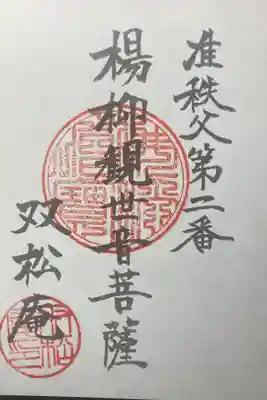 准秩父第二番
楊柳観世音菩薩
双松庵